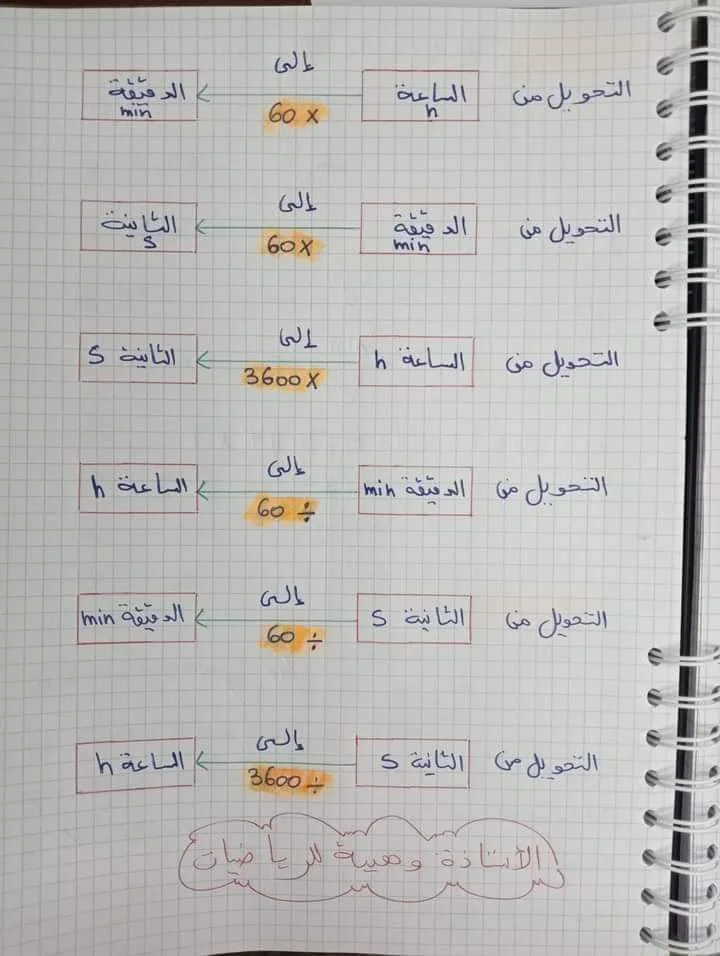 التحويل من الساعة h إلى 60 x الدقيقة min
التحويل من الدقيقة min إلى 60 x الثانية s
التحويل من الساعة h إلى 3600 x الثانية s
التحويل من الدقيقة min إلى 60 ÷ الساعة h
التحويل من الثانية s إلى 60 ÷ الدقيقة min
التحويل من الثانية s إلى 3600 ÷ الساعة h
الأستاذة وهيبة للرياضيات